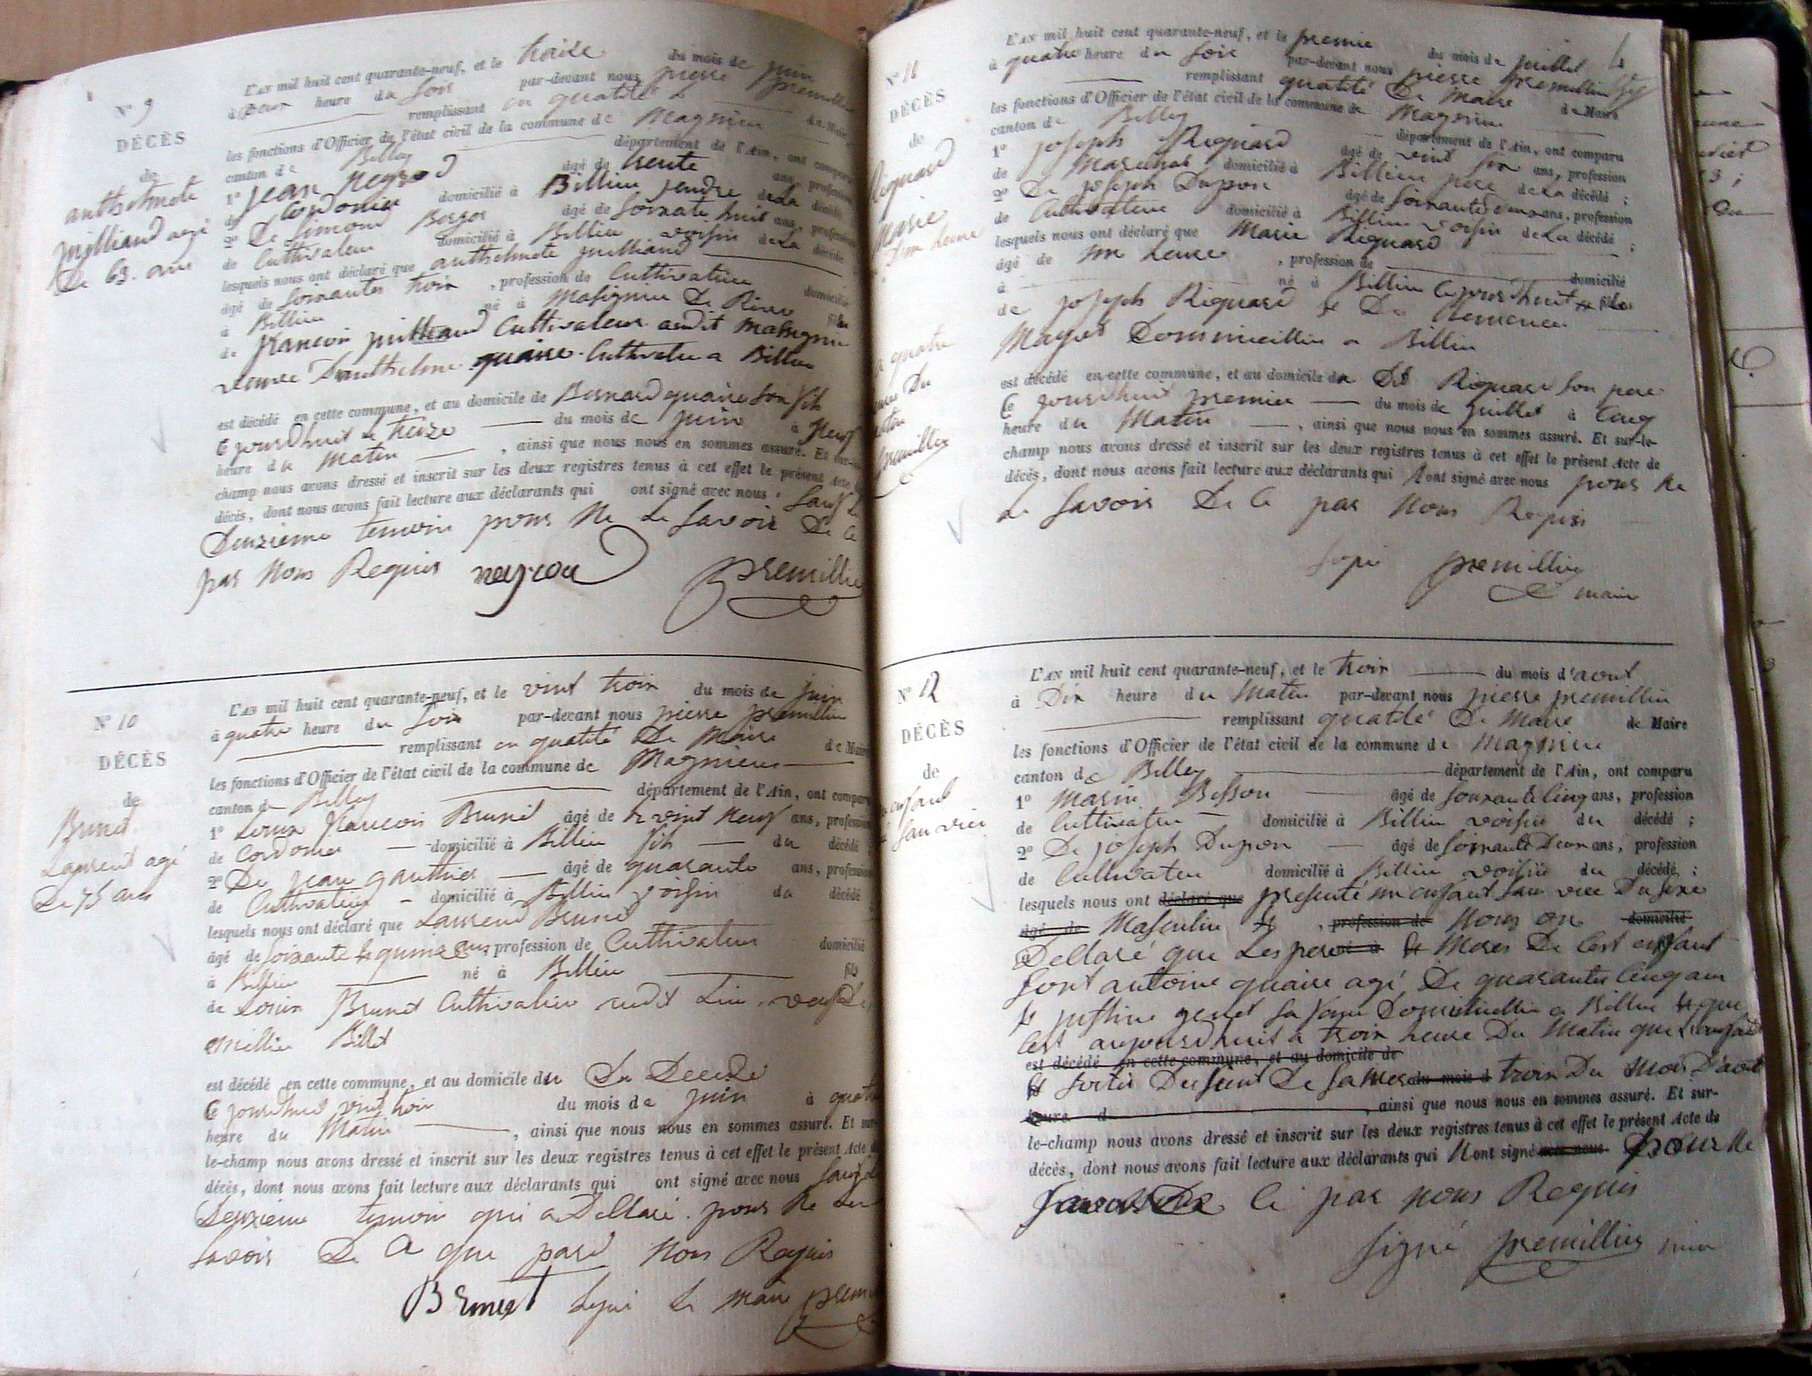 N° 9
DÉCÈS
de
anthelmete
juilliard agé
De 63. ans
L'AN mil huit cent quarante-neuf, et le treize du mois de juin
à deux heure du soir par-devant nous pierre premillieu
remplissant en qualité de de Maire
les fonctions d'Officier de l'état civil de la commune de Magnieu
canton de Belley département de l'Ain, ont comparu
1° jean Neyrod âgé de trente ans, profession
de Cordonier domicilié à Billieu jendre de La décédé
2° De Simond Berger âgé de Soixante huit ans, profession
de Cultivateur domicilié à Billieu voisin de La décédé
lesquels nous ont déclaré que anthelmete juilliard
âgé de Soixantes trois , profession de Cultivatrice domicilié
à Billieu né à Massignieu De Rives fille
de francois juilliard Cultivateur audit Massignieu
veuve D'anthelme quaire Cultivateur a Billieu
est décédé en cette commune, et au domicile de Bernard quaire son fils
Ce jourdhuit le treize du mois de juin à neuf
heure du Matin , ainsi que nous nous en sommes assuré. Et sur-le-
champ nous avons dressé et inscrit sur les deux registres tenus à cet effet le présent Acte
décès, dont nous avons fait lecture aux déclarants qui ont signé avec nous Sauf le
Deuzieme temoin pour Ne Le Savoir De Ce
par Nous Requis neyroud premillieu
N° 10
DÉCÈS
de
Brunet
Laurent agé
De 75 ans
L'AN mil huit cent quarante-neuf, et le vint trois du mois de juin
à quatre heure du Soir par-devant nous pierre premillieu
remplissant en qualité De Maire de Maire
les fonctions d'Officier de l'état civil de la commune de Magnieu
canton de Belley département de l'Ain, ont comparu
1° Louis francois Brunet âgé de vint neuf ans, profession
de Cordonier domicilié à Billieu fils du décédé
2° De jean gauthier âgé de quarante ans, profession
de Cultivateur domicilié à Billieu voisin du décédé
lesquels nous ont déclaré que Laurend Brunet
âgé de Soixante & quinze ans, profession de Cultivateur domicilié
à Billieu né à Billieu fils
de Louis Brunet Cultivateur audit Lieu
Billet
est décédé en cette commune, et au domicile du Du Decedé
Ce jourdhuit vint trois du mois de juin à quatre
heure du Matin , ainsi que nous nous en sommes assuré. Et sur-
le-champ nous avons dressé et inscrit sur les deux registres tenus à cet effet le présent Acte
décès, dont nous avons fait lecture aux déclarants qui ont signé avec nous Sauf le
Deuzieme temoin qui a Dellaré pour Ne Le
Savoir De Ce que pard Nous Requis
Brunet Signé Le Maire premillieu
4
N° 11
DÉCÈS
de
Riquard
Marie
d'un heure
L'AN mil huit cent quarante-neuf, et le premie du mois de juillet
à quatre heure du Soir par-devant nous pierre premillieu
remplissant quatité De Maire de Maire
les fonctions d'Officier de l'état civil de la commune de Magnieu
canton de Belley département de l'Ain, ont comparu
1° joseph Riquard âgé de vint ans, profession
de Marechal domicilié à Billieu pere de La décédé ;
2° De joseph Dupon âgé de Soixante Deux ans, profession
de Cultivateur domicilié à Billieu voisin de La décédé ;
lesquels nous ont déclaré que Marie Riquard
âgé de un heure , profession de domicilié
à né à Billieu Ce jourdhuit fille
de joseph Riquard & De Clemence
Magnet Dommicillier a Billieu
est décédé en cette commune, et au domicile du Dit Riquard Son pere
Ce jourdhuit premier du mois de juillet à Cinq
heure du Matin , ainsi que nous nous en sommes assuré. Et sur-le-
champ nous avons dressé et inscrit sur les deux registres tenus à cet effet le présent Acte de
décès, dont nous avons fait lecture aux déclarants qui Nont signé avec nous pour Ne
Le Savoir De Ce par Nous Requis
premillieu
maire
N° 12
DÉCÈS
de
enfant
Sau vie
L'AN mil huit cent quarante-neuf, et le trois du mois d'aout
à Dix heure du Matin par-devant nous pierre premillieu
remplissant quatité De Maire de Maire
les fonctions d'Officier de l'état civil de la commune de Magnieu
canton de Belley département de l'Ain, ont comparu
1° Marin Besson âgé de Soixante Cinq ans, profession
de Cultivateur domicilié à Billieu voisin du décédé ;
2° De joseph Dupon âgé de Soixante Deux ans, profession
de Cultivateur domicilié à Billieu voisin du décédé ;
lesquels nous ont déclaré que presenté un enfant Sau vie Du Sexe
âgé de Masculin & , profession de Nous on domicilié
Dellaré que Les pere né à & Meres De Cest enfant
Sont antoine quaire agé De quarante Cinq ans
& justine genet Sa fame Domicillier a Billieu & que
Cest aujourdhuit a trois heure Du Matin que L'enfant
est décédé en cette commune, et au domicile de
Et Sortie Du Sein De Sa Mere du mois d trois Du Mois D'aout
heure d , ainsi que nous nous en sommes assuré. Et sur-
le-champ nous avons dressé et inscrit sur les deux registres tenus à cet effet le présent Acte de
décès, dont nous avons fait lecture aux déclarants qui Nont signé avec nous pour Ne
Savoir De Ce par Nous Requis
Signé premillieu